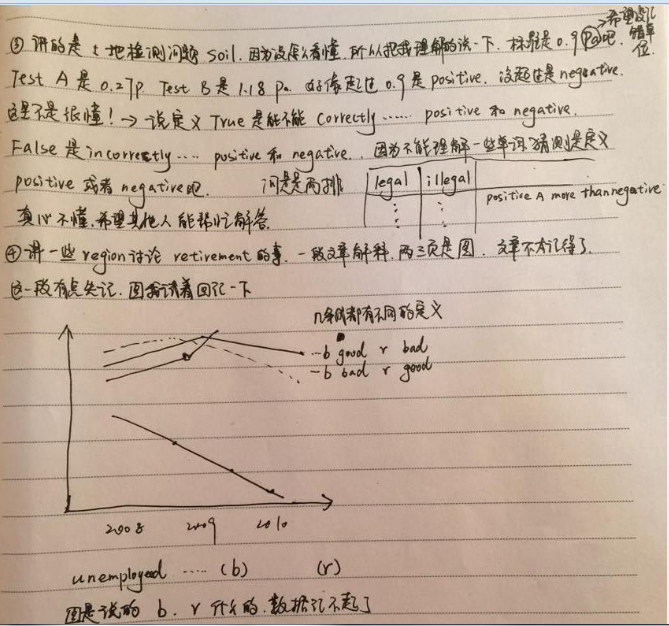 ③ 讲的是土地检测问题 soil. 因为没怎么看懂, 所以把我理解的说一下. 标准是 0.9 Pa吧. →希望没记错单位
Test A 是 0.27p. Test B 是 1.18 pa. 好像超过 0.9 是 positive. 没超过是 negative.
这里不是很懂! → 说定义 True 是能不能 correctly ...... positive 和 negative.
False 是 incorrectly .... positive 和 negative. 因为不能理解一些单词 猜测是定义
positive 或者 negative吧. 问是是两排 legal illegal
positive A more than negative
真心不懂, 希望其他人能帮忙解答.
④ 讲一些 region 讨论 retirement 的事. 一段文章解释, 两三页是图. 文章不太记得了.
这一段有点失记. 图我试着回忆一下
几条线都有不同的定义
--b good r bad
--b bad r good
2008 2009 2010
unemployeed ..... (b) (r)
图是说的 b. r 什么的. 数据记不起了